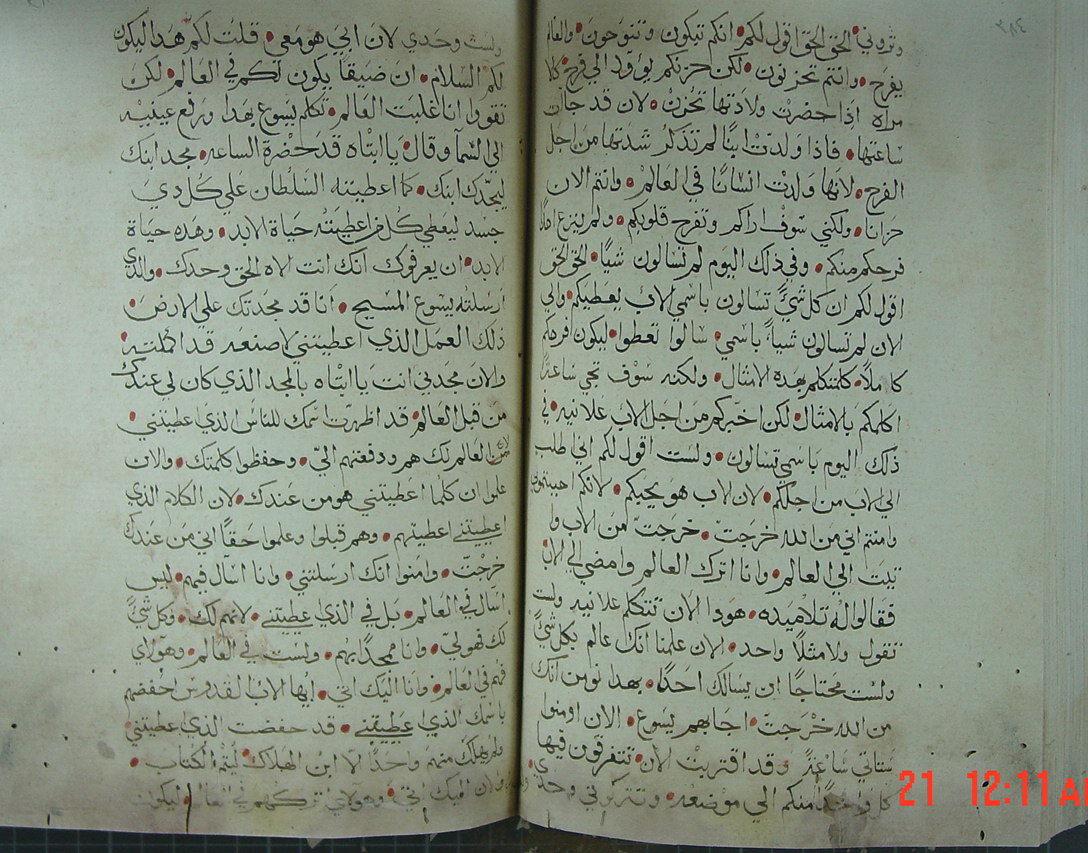 وتروني الحق الحق اقول لكم انكم تبكون وتنوحون والعالم
يفرح وانتم تحزنون لكن حزنكم يوول الي فرح كلا
مراه اذا حضرت ولادتها تحزن لان قد جات
ساعتها فاذا ولدت ابنًا لم تذكر شدتها من اجل
الفرح لانها ولدت انسانًا في العالم وانتم الان
حزانا ولكني سوف اراكم وتفرح قلوبكم ولم ينزع احدًا
فرحكم منكم وفي ذلك اليوم لم تسالون شيًا الحق الحق
اقول لكم ان كل شيً تسالون باسمي الاب يعطيكم والي
الان لم تسالون شياً باسمي سالوا تعطوا ليكون فرحكم
كاملًا كلمتكم بهده الامثال ولكنه سوف تجي ساعة لا
اكلمكم بالامثال لكن اخبركم من اجل الاب علانيه في
ذلك اليوم باسمي تسالون ولست اقول لكم اني طلب
الي الاب من اجلكم لان الاب هو يحبكم لانكم احببتموني
وامنتم اني من الله خرجت خرجت من الاب وا
تيت الي العالم وانا اترك العالم وامضي الي الاب
فقالوا له تلاميده هودا الان تتكلم علانيه ولست
تقول ولا مثلًا واحد الان علمنا انك عالم بكل شيً
ولست محتاجًا ان يسالك احدًا بهدا نومن انك
من الله خرجت اجابهم يسوع الان اومنوا
ستاتي ساعة وقد اقتربت الان تتفرقون فيها
كل واحدًا منكم الي موضعه وتتركوني وحدي
ولست وحدي لان ابي هو معي قلت لكم هدا ليكون
لكم السلام ان ضيقًا يكون لكم في العالم لكن
تقووا انا غلبت العالم تكلم يسوع بهدا ورفع عينيه
الي السما وقال يا ابتاه قد حضرة الساعه مجد ابنك
ليمجدك ابنك كما اعطيته السلطان علي كل دي
جسد ليعطي كل من اعطيته حياة الابد وهده حياة
الابد ان يعرفوك انك انت الاه الحق وحدك والذي
ارسلته يسوع المسيح انا قد مجدتك علي الارض
ذلك العمل الذي اعطيتني لاصنعه قد اكملته
والان مجدني انت يا ابتاه بالمجد الذي كان لي عندك
من قبل العالم قد اظهرت اسمك للناس الذي اعطيتني
من العالم لك هم ودفعتهم اليّ وحفظوا كلمتك والان
علموا ان كلما اعطيتني هو من عندك لان الكلام الذي
اعطيتني اعطيتهم وهم قبلوا وعلموا حقًا اني من عندك
خرجت وامنوا انك ارسلتني وانا اسال فيهم ليس
اسال في العالم بل في الذي اعطيتني لانهم لك وكل شيً
لك فهو ليّ وانا ممجدًا بهم ولست في العالم وهولاي
فهم في العالم وانا اليك اتي ايها الاب القدوس احفضهم
باسمك الذي عطيتني قد حفضت الذي اعطيتني
ولم يهلك منهم واحدًا الا ابن الهلاك ليتم الكتاب
والان اليك اتي وهولاي تركتهم في العالم ليكون
21 12:11 AM